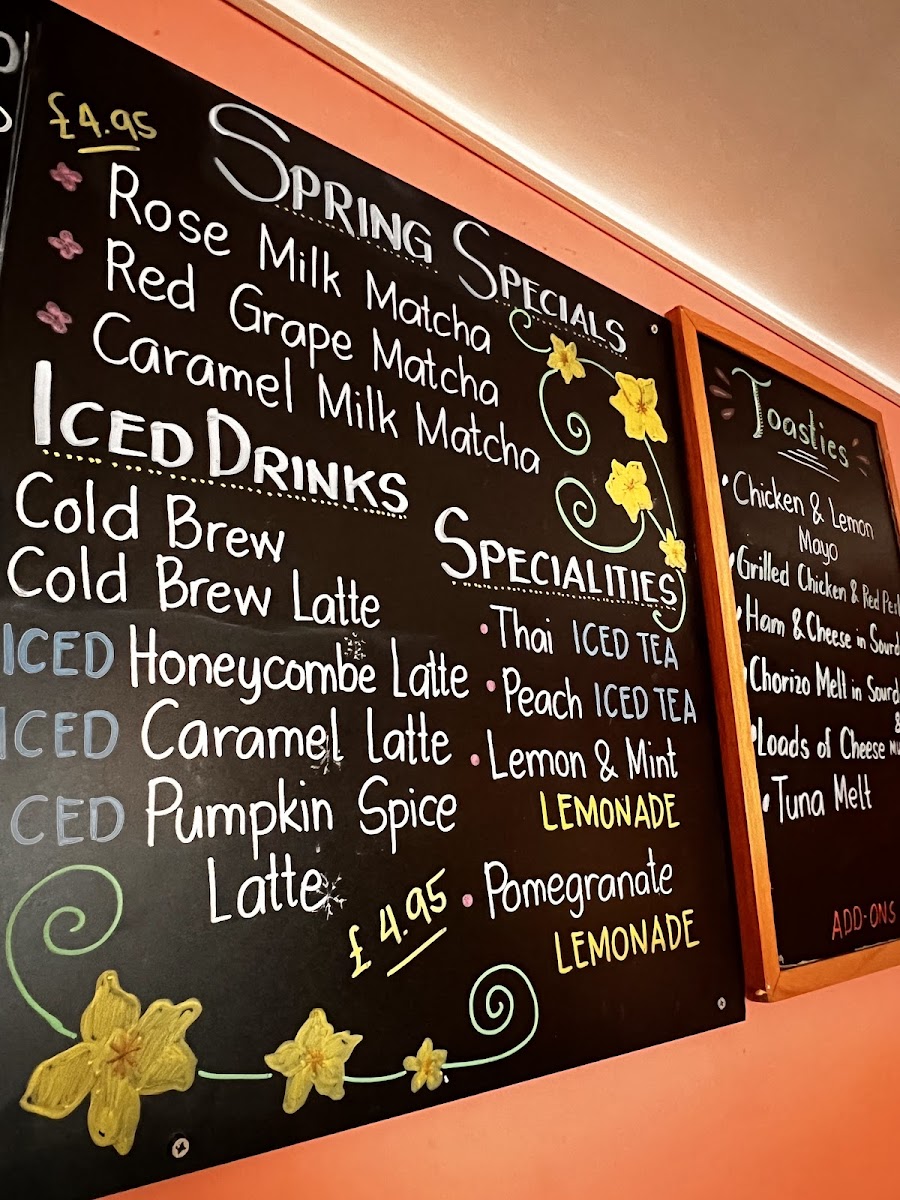 £4.95
SPRING SPECIALS
Rose Milk Matcha
Red Grape Matcha
Caramel Milk Matcha
ICED DRINKS
Cold Brew
Cold Brew Latte
ICED Honeycombe Latte
ICED Caramel Latte
ICED Pumpkin Spice
Latte
£4.95
SPECIALITIES
Thai ICED TEA
Peach ICED TEA
Lemon & Mint
LEMONADE
Pomegranate
LEMONADE
Toasties
Chicken & Lemon
Mayo
Grilled Chicken & Red
Ham & Cheese in
Chorizo Melt in
&
Loads of Cheese
Tuna Melt
ADD-ONS